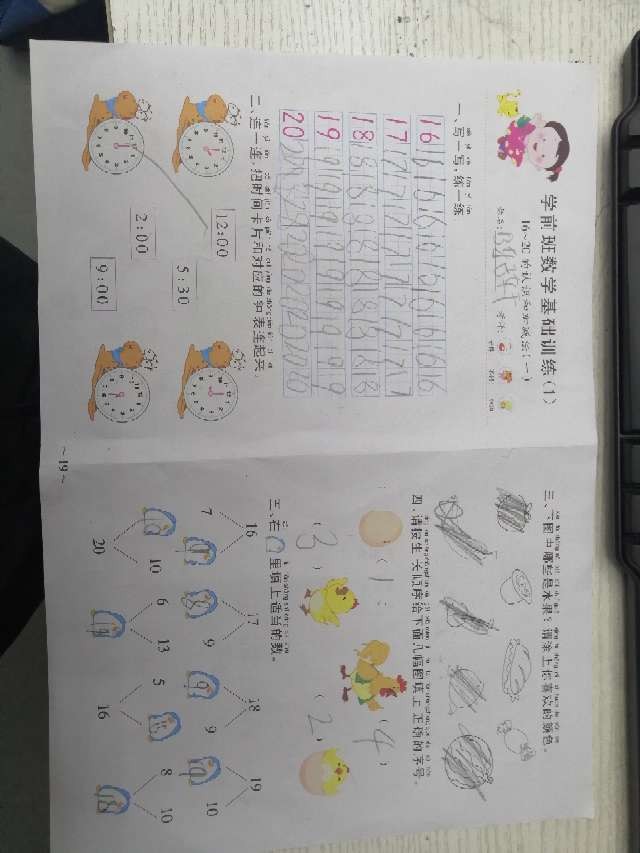 学前班数学基础训练(1)
16~20的认识和加减法(一)
姓名:
一、写一写,练一练
16 16 16 16 16 16 16 16
17 17 17 17 17 17 17 17
18 18 18 18 18 18 18 18
19 19 19 19 19 19 19 19
20 20 20 20 20 20 20 20
二、连一连,把时间卡片和对应的钟表连起来。
12:00
5:30
2:00
9:00
~19~
三、下图中哪些是水果?请涂上你喜欢的颜色。
四、请按生长顺序给下面几幅图填上正确的序号。
(1)
(3)
(4)
(2)
三、在 里填上适当的数。
16 17 18 19
7 9 9 9 10
10 6 13 5 8 10
20 16